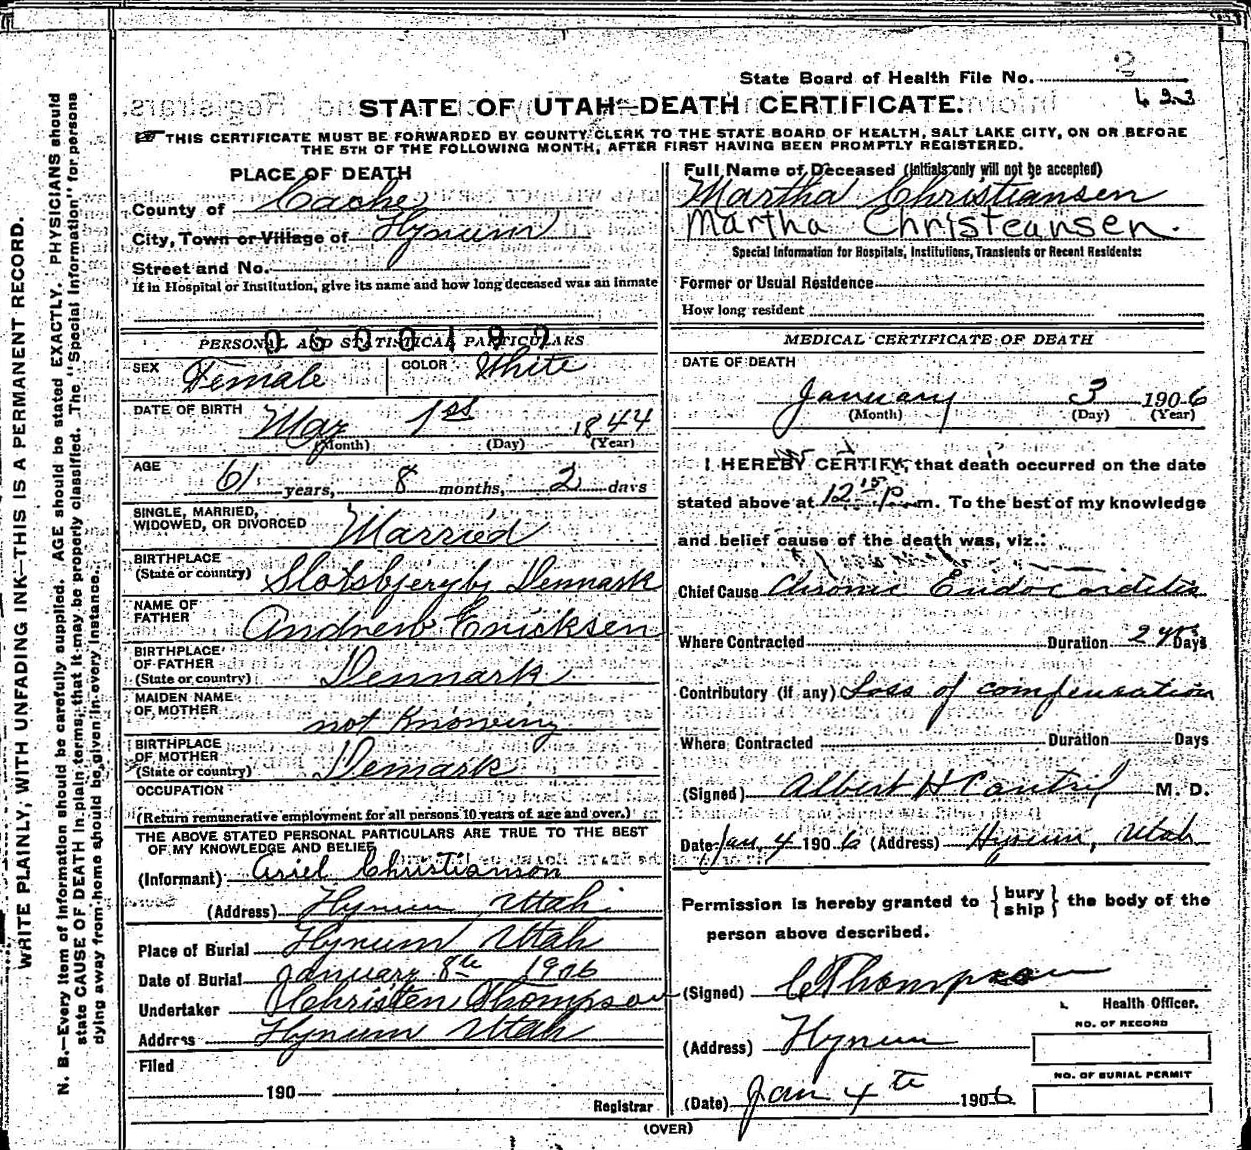 State Board of Health File No. 2
433
STATE OF UTAH—DEATH CERTIFICATE.
THIS CERTIFICATE MUST BE FORWARDED BY COUNTY CLERK TO THE STATE BOARD OF HEALTH, SALT LAKE CITY, ON OR BEFORE
THE 5TH OF THE FOLLOWING MONTH, AFTER FIRST HAVING BEEN PROMPTLY REGISTERED.
WRITE PLAINLY, WITH UNFADING INK—THIS IS A PERMANENT RECORD.
N. B.—Every item of information should be carefully supplied. AGE should be stated EXACTLY. PHYSICIANS should
state CAUSE OF DEATH in plain terms, that it may be properly classified. The "Special Information" for persons
dying away from home should be given in every instance.
PLACE OF DEATH
County of Cache
City, Town or Village of Hyrum
Street and No.
If in Hospital or Institution, give its name and how long deceased was an inmate
0600197
PERSONAL AND STATISTICAL PARTICULARS
SEX Female COLOR White
DATE OF BIRTH May 1st 1844
(Month) (Day) (Year)
AGE
61 years, 8 months, 2 days
SINGLE, MARRIED,
WIDOWED, OR DIVORCED Married
BIRTHPLACE
(State or country) Slotsbjergby Denmark
NAME OF
FATHER Andrew Ericksen
BIRTHPLACE
OF FATHER
(State or country) Denmark
MAIDEN NAME
OF MOTHER not Knowing
BIRTHPLACE
OF MOTHER
(State or country) Demark
OCCUPATION
(Return remunerative employment for all persons 10 years of age and over.)
THE ABOVE STATED PERSONAL PARTICULARS ARE TRUE TO THE BEST
OF MY KNOWLEDGE AND BELIEF
(Informant) Ariel Christianson
(Address) Hyrum Utah
Place of Burial Hyrum Utah
Date of Burial January 8th 1906
Undertaker Christen Thompson
Address Hyrum Utah
Filed
190
Registrar
Full Name of Deceased (Initials only will not be accepted)
Martha Christiansen
Martha Christeansen.
Special Information for Hospitals, Institutions, Transients or Recent Residents:
Former or Usual Residence
How long resident
MEDICAL CERTIFICATE OF DEATH
DATE OF DEATH
January 3 1906
(Month) (Day) (Year)
I HEREBY CERTIFY, that death occurred on the date
stated above at 12 15 P. m. To the best of my knowledge
and belief cause of the death was, viz.:
Chief Cause Chronic Endocarditis
Where Contracted Duration 2 yrs Days
Contributory (if any) Loss of compensation
Where Contracted Duration Days
(Signed) Albert H Cantril M. D.
Date Jan, 4 1906 (Address) Hyrum, Utah
Permission is hereby granted to { bury ship } the body of the
person above described.
(Signed) C Thompson
Health Officer.
(Address) Hyrum
NO. OF RECORD
NO. OF BURIAL PERMIT
(Date) Jan 4th 1906.
(OVER)